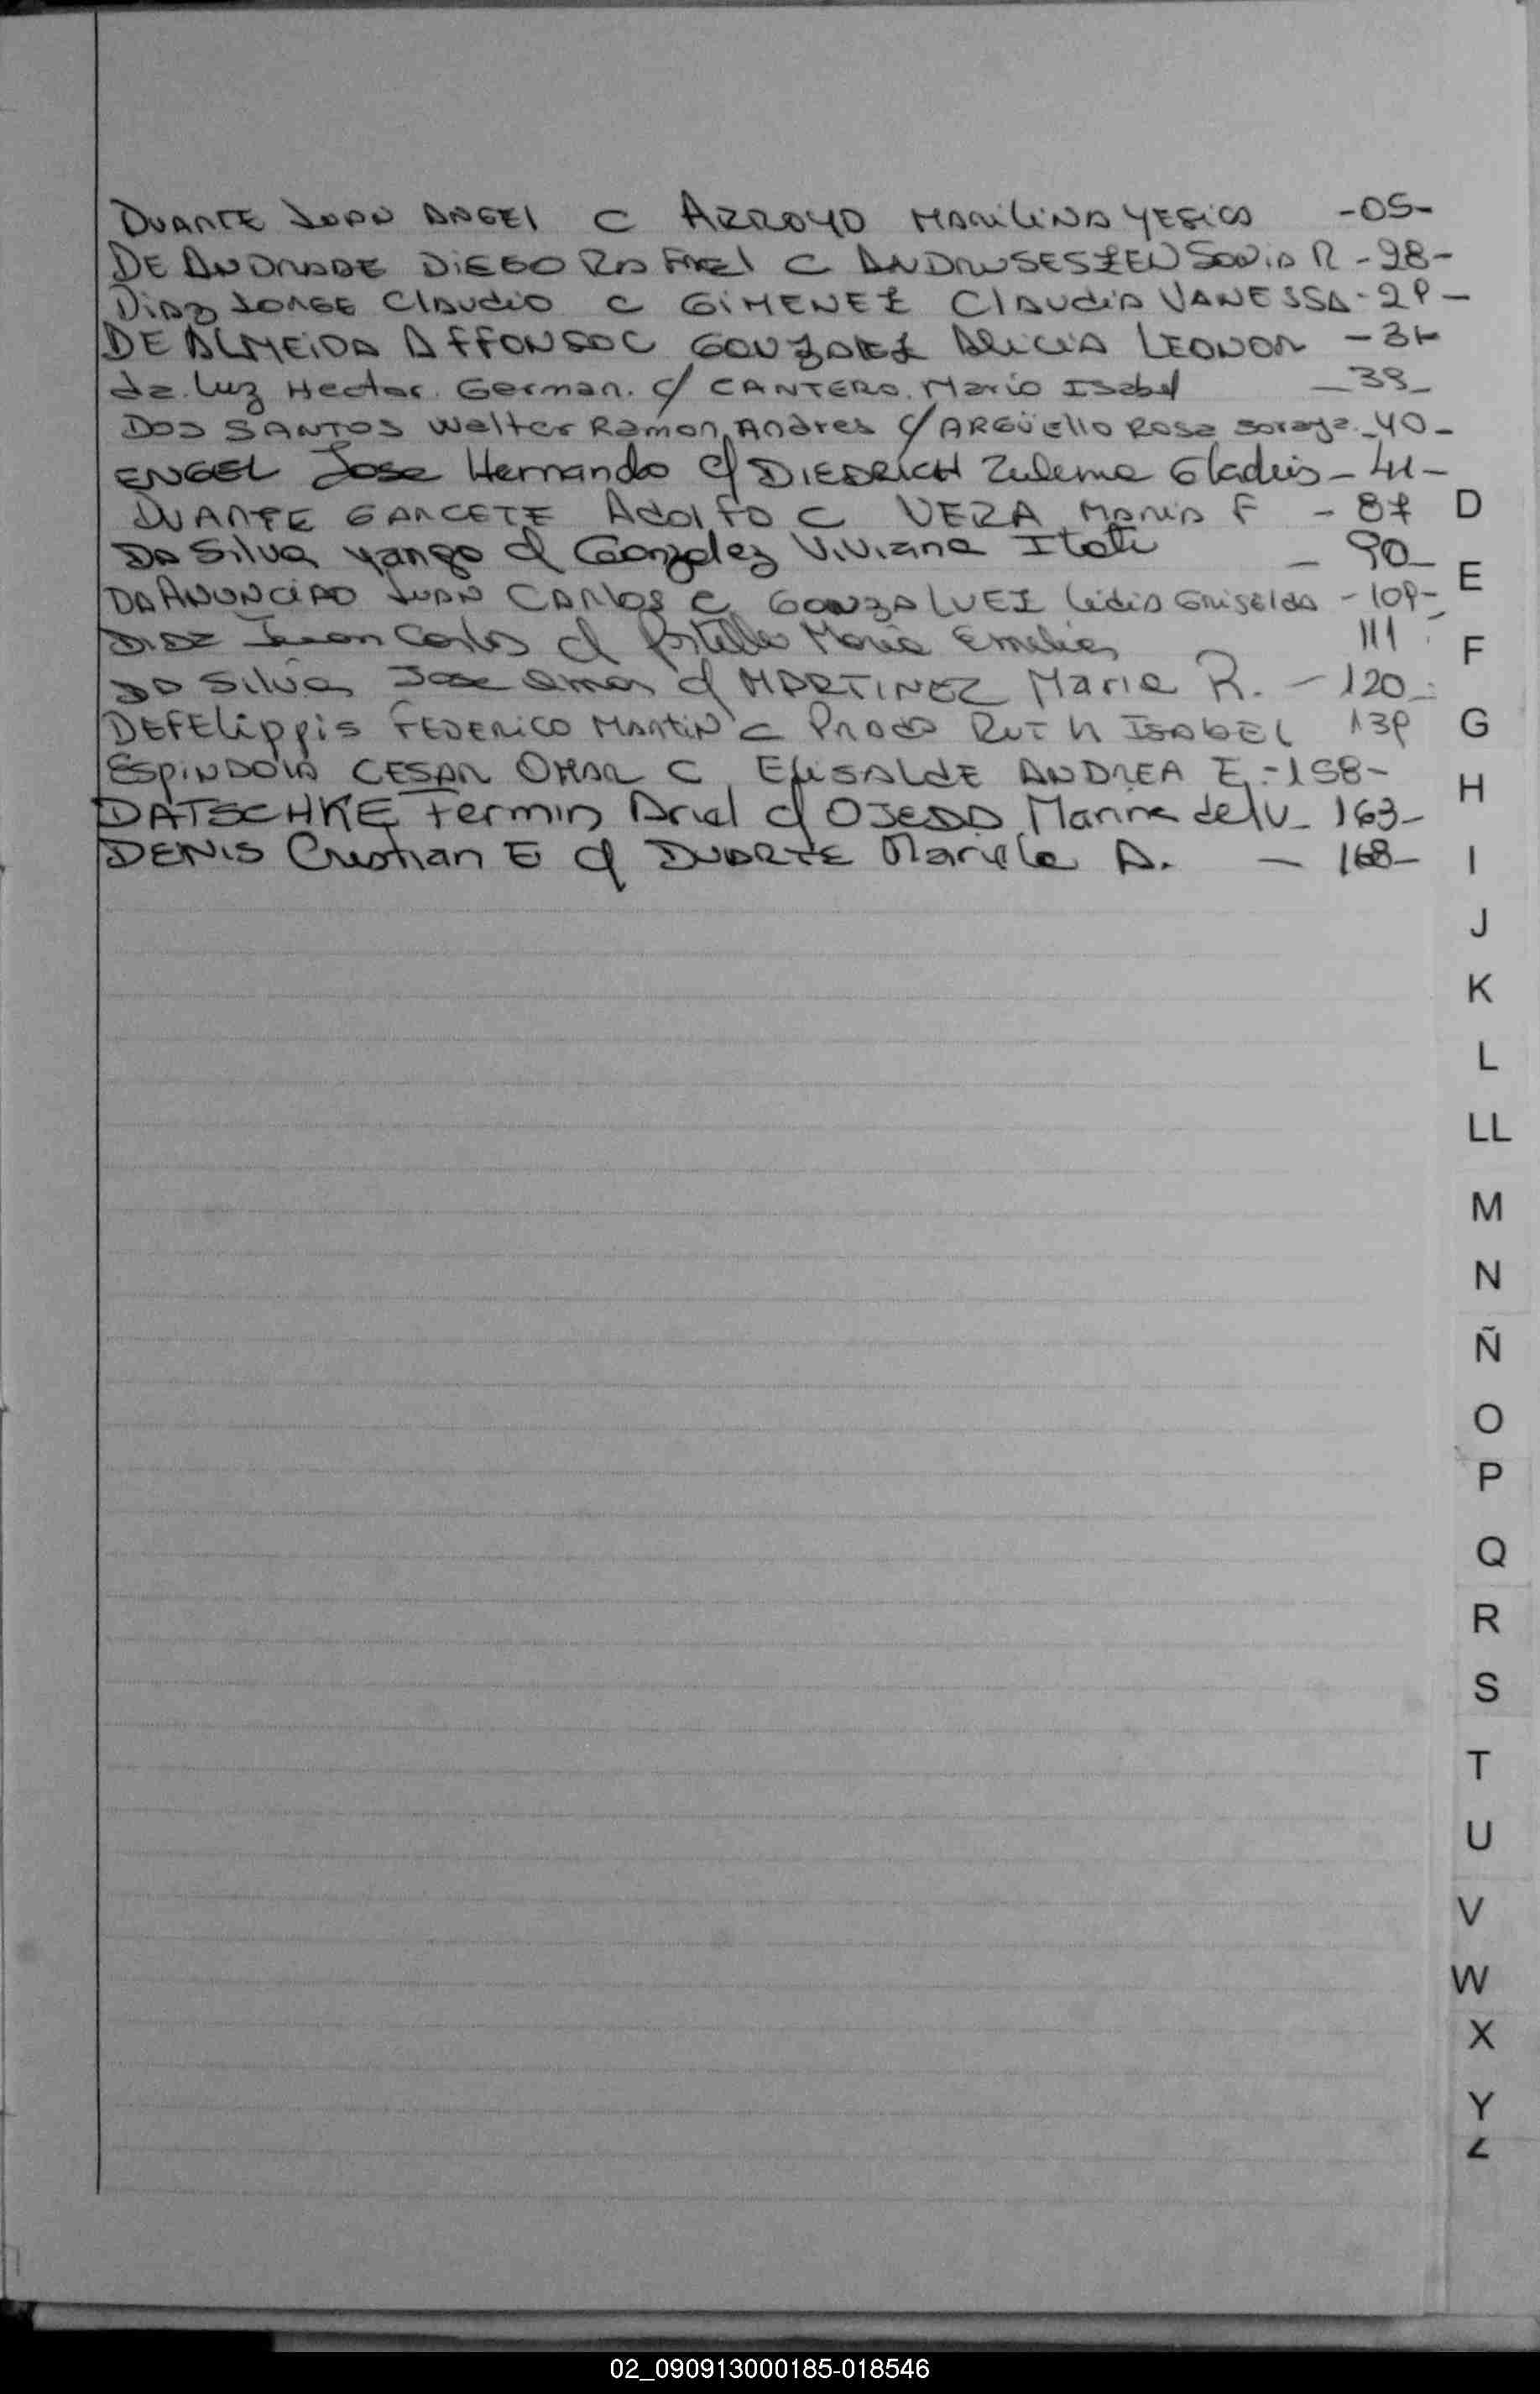 DUARTE JUAN ANGEL C ARROYO MARILINA YESICA -05-
DE ANDRADE DIEGO RAFAEL C ANDRUSESZEN SONIA R - 28-
DIAZ JORGE Claudio C GIMENEZ CLAUDIA VANESSA - 29 -
DE ALMEIDA AFFONSO C GONZALEZ ALICIA LEONOR - 31-
da. Luz Hector. German. c/ CANTERO. Maria Isabel _ 39_
DOS SANTOS Walter Ramon Andres c/ ARGÜELLO Rosa Soraya _40_
ENGEL Jose Hernando c/ DIEDRICH Zulema Gladis - 41 -
DUARTE GARCETE Adolfo C VERA MARIA F - 87
DA Silva yango c/ Gonzalez Viviana Itati _ 90_
DA ANUNCIAO JUAN CARLOS C GONZALVEZ Lidia Griselda - 109-
DIAZ Juan Carlos c/ Portillo Maria Emilia 111
DA Silva Jose Omar c/ MARTINEZ Maria R. - 120_
DEFELippis FEDERICO MARTIN C PRADO RUTH ISABEL 139
ESPINDOLA CESAR OMAR C ELISALDE ANDREA E. - 158-
DATSCHKE Fermin Ariel c/ OJEDA Marina del V_ 163_
DENIS Cristian E c/ DUARTE Mariela A. - 168_
D
E
F
G
H
I
J
K
L
LL
M
N
Ñ
O
P
Q
R
S
T
U
V
W
X
Y
Z
02_090913000185-018546